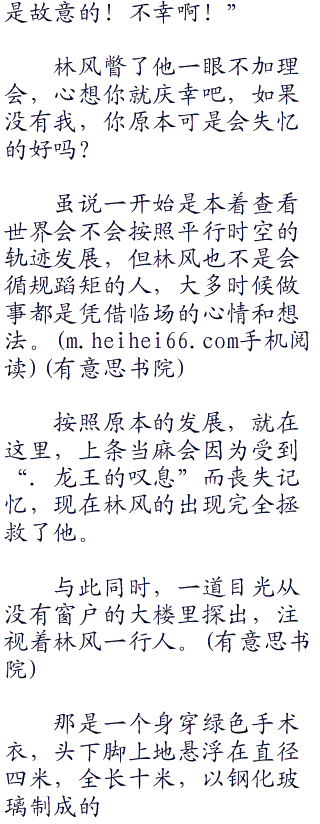 是故意的！不幸啊！”
林风瞥了他一眼不加理
会，心想你就庆幸吧，如果
没有我，你原本可是会失忆
的好吗？
虽说一开始是本着查看
世界会不会按照平行时空的
轨迹发展，但林风也不是会
循规蹈矩的人，大多时候做
事都是凭借临场的心情和想
法。(m.heihei66.com手机阅
读)(有意思书院)
按照原本的发展，就在
这里，上条当麻会因为受到
“．龙王的叹息”而丧失记
忆，现在林风的出现完全拯
救了他。
与此同时，一道目光从
没有窗户的大楼里探出，注
视着林风一行人。(有意思书
院)
那是一个身穿绿色手术
衣，头下脚上地悬浮在直径
四米，全长十米，以钢化玻
璃制成的